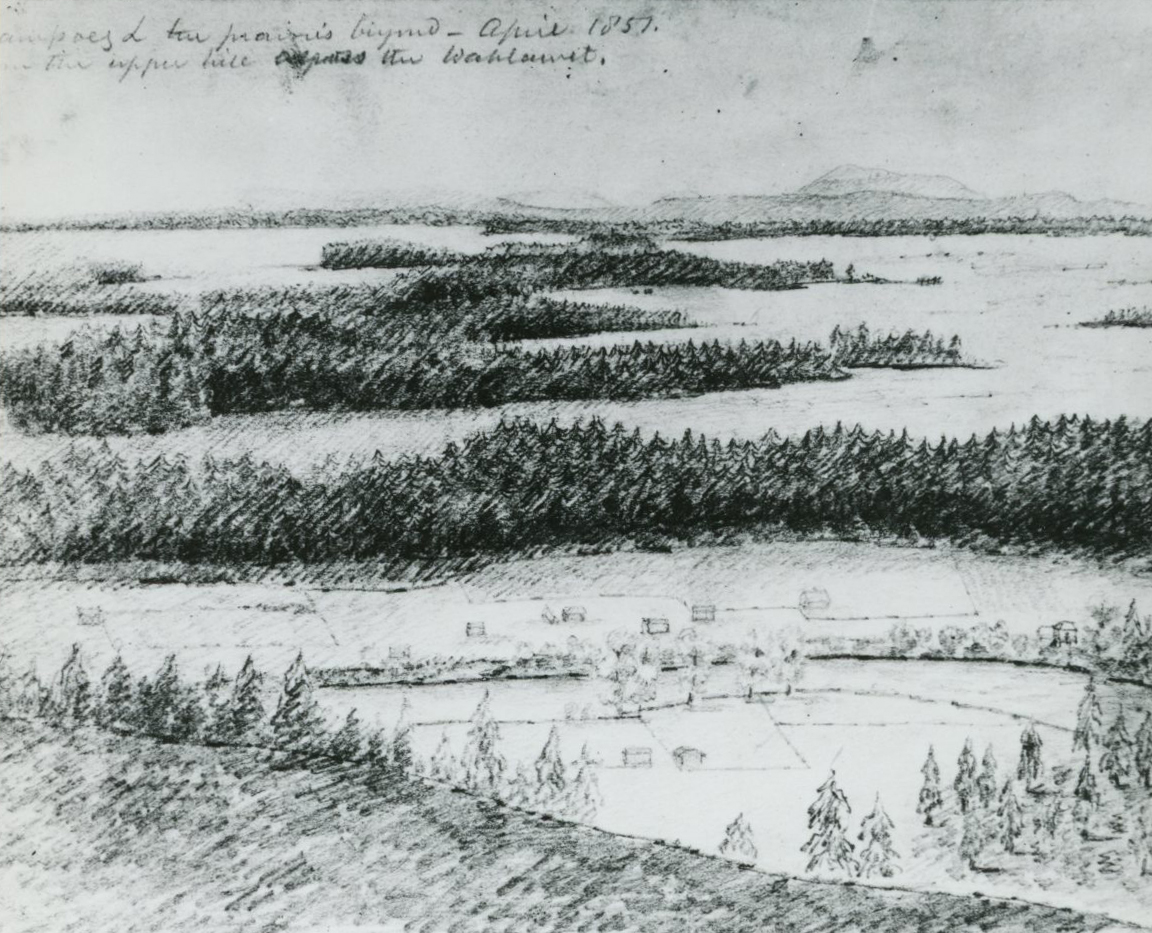 ampoeg & the prairies beyond – April. 1851.
the upper hill across the Wahlamet.